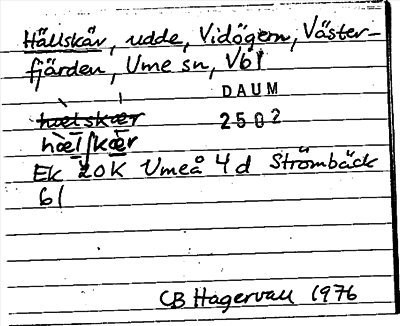 Hällskär, udde, Vidögern, Väster-
fjärden, Ume sn, Vbl
DAUM
hætskær
2502
hǣlʃkǣr
Ek 20K Umeå 4d Strömbäck
6l
CB Hagervall 1976